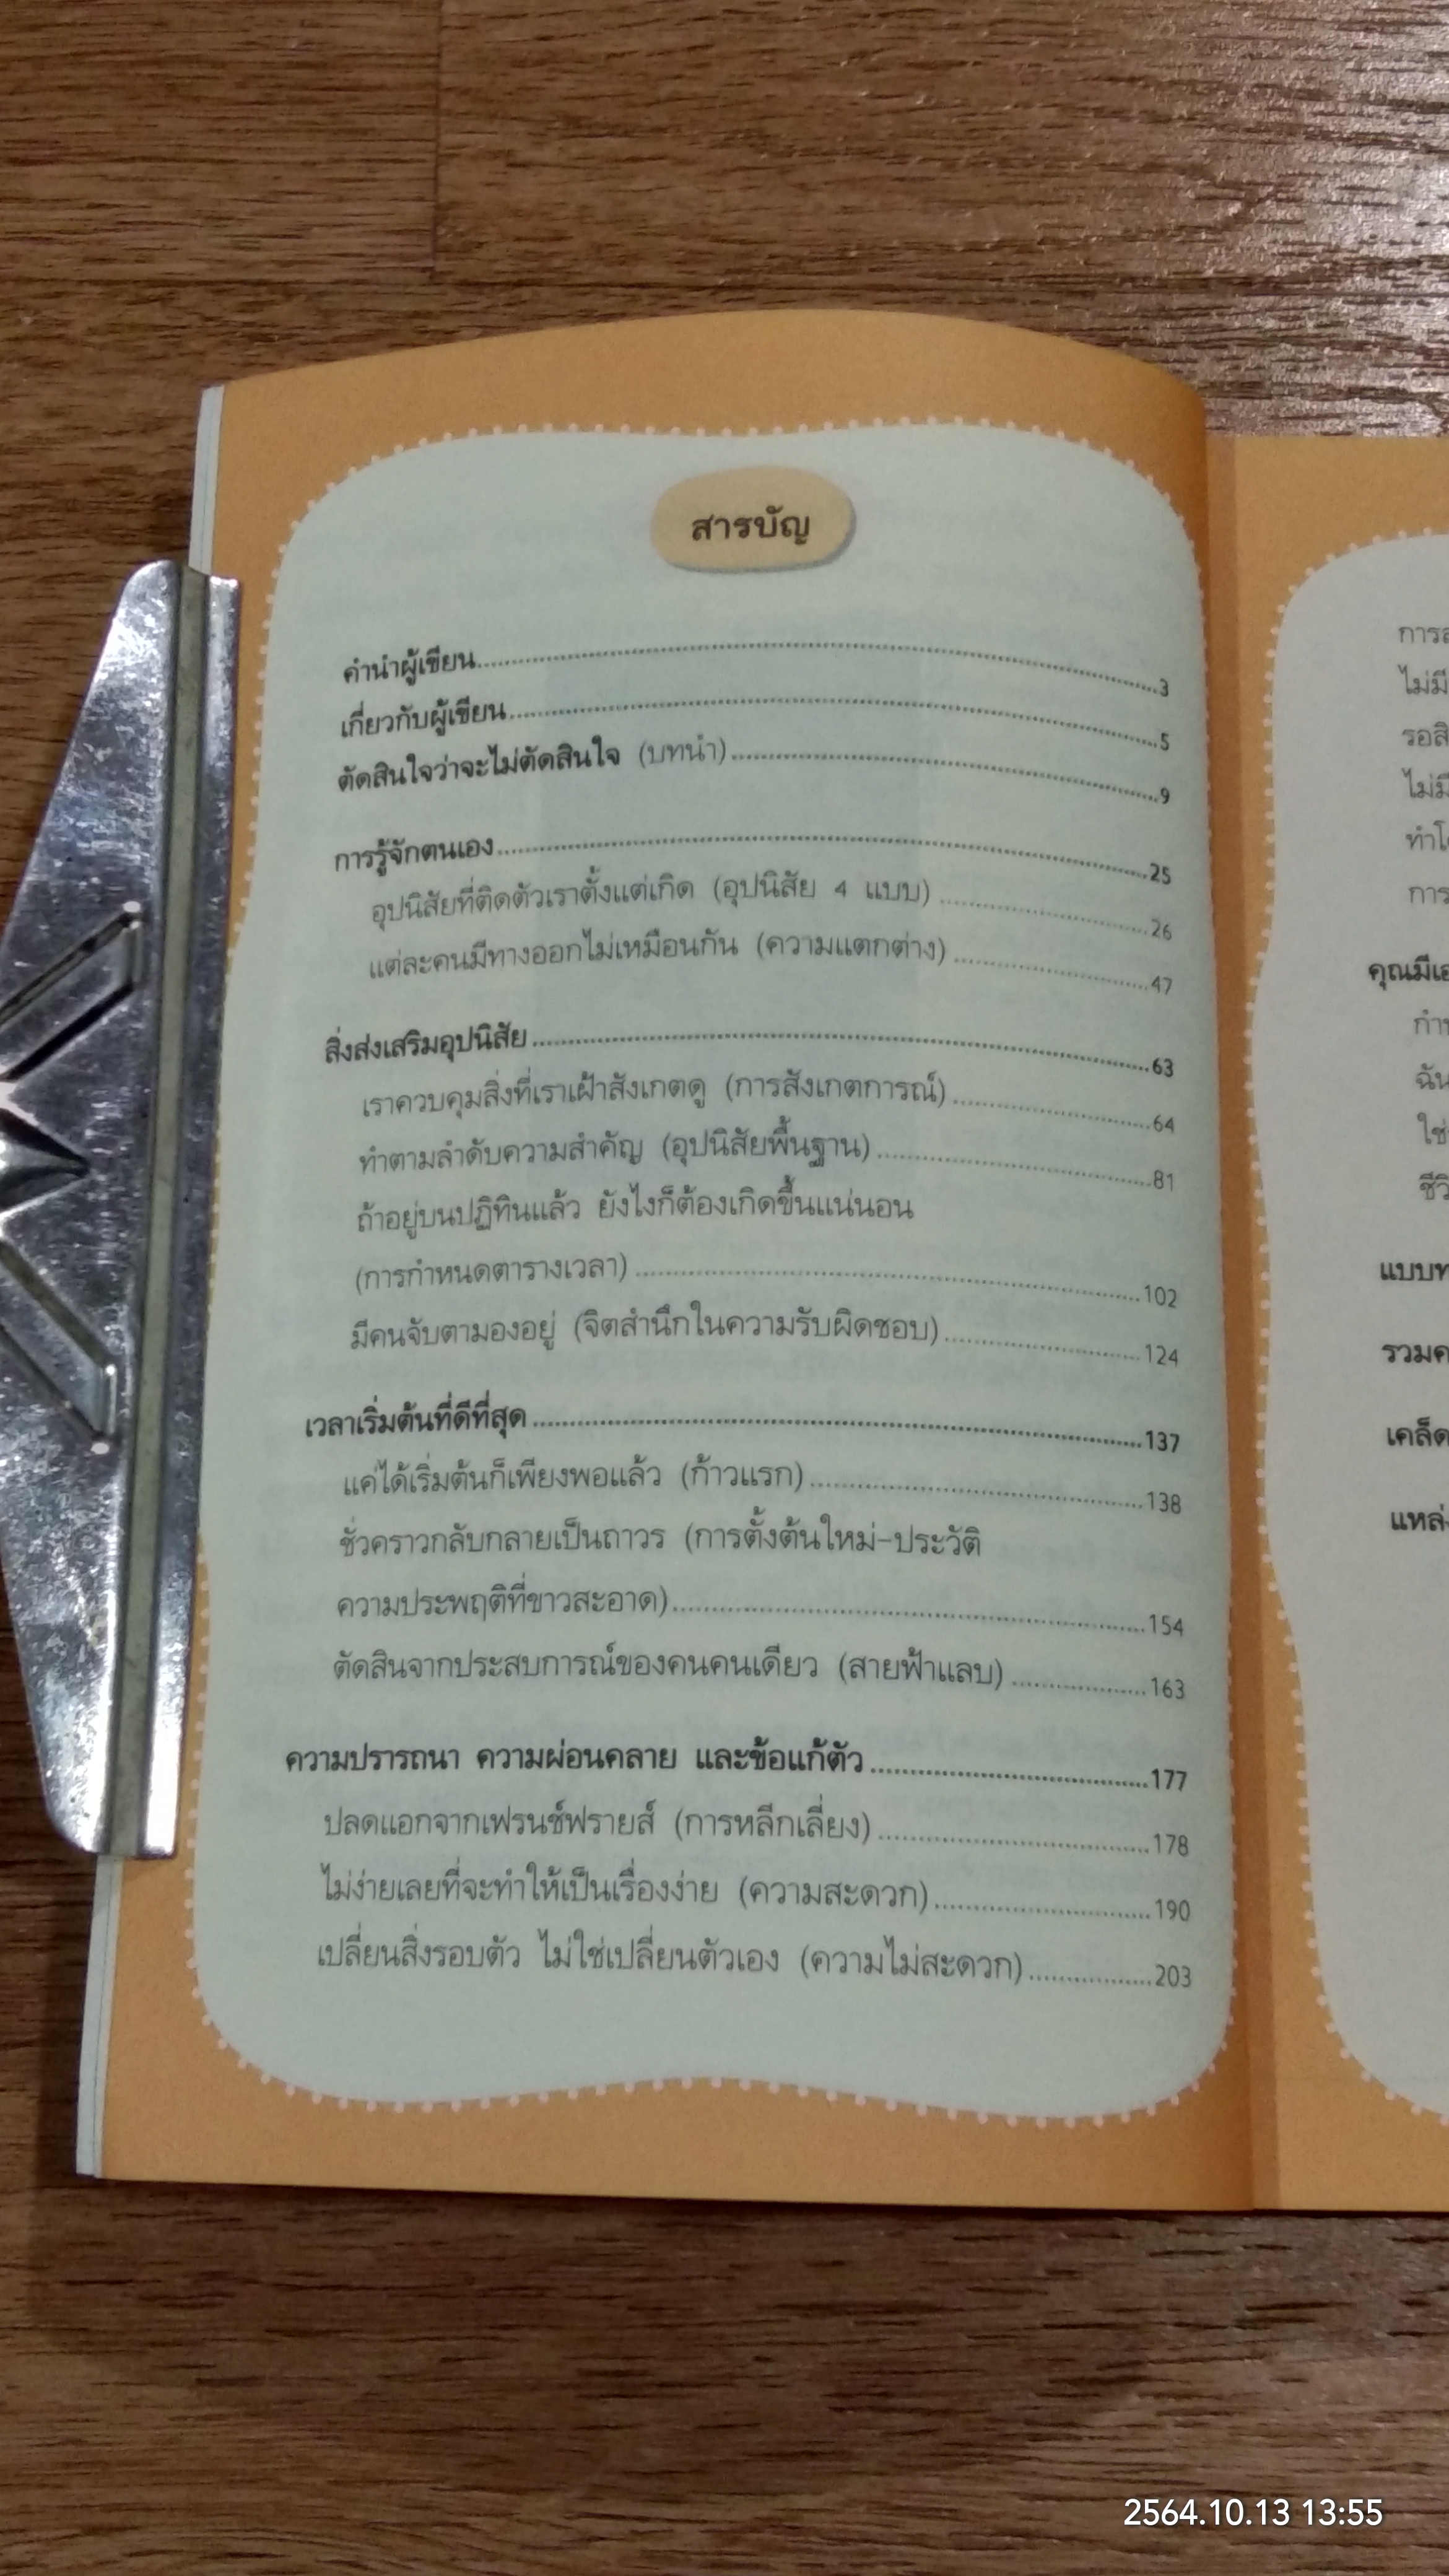 สารบัญ
คำนำผู้เขียน 3
เกี่ยวกับผู้เขียน 5
ตัดสินใจว่าจะไม่ตัดสินใจ (บทนำ) 9
การรู้จักตนเอง 25
อุปนิสัยที่ติดตัวเราตั้งแต่เกิด (อุปนิสัย 4 แบบ) 26
แต่ละคนมีทางออกไม่เหมือนกัน (ความแตกต่าง) 47
สิ่งส่งเสริมอุปนิสัย 63
เราควบคุมสิ่งที่เราเฝ้าสังเกตดู (การสังเกตการณ์) 64
ทำตามลำดับความสำคัญ (อุปนิสัยพื้นฐาน) 81
ถ้าอยู่บนปฏิทินแล้ว ยังไงก็ต้องเกิดขึ้นแน่นอน
(การกำหนดตารางเวลา) 102
มีคนจับตามองอยู่ (จิตสำนึกในความรับผิดชอบ) 124
เวลาเริ่มต้นที่ดีที่สุด 137
แค่ได้เริ่มต้นก็เพียงพอแล้ว (ก้าวแรก) 138
ชั่วคราวกลับกลายเป็นถาวร (การตั้งต้นใหม่-ประวัติ
ความประพฤติที่ขาวสะอาด) 154
ตัดสินจากประสบการณ์ของคนคนเดียว (สายฟ้าแลบ) 163
ความปรารถนา ความผ่อนคลาย และข้อแก้ตัว 177
ปลดแอกจากเฟรนช์ฟรายส์ (การหลีกเลี่ยง) 178
ไม่ง่ายเลยที่จะทำให้เป็นเรื่องง่าย (ความสะดวก) 190
เปลี่ยนสิ่งรอบตัว ไม่ใช่เปลี่ยนตัวเอง (ความไม่สะดวก) 203
ไม่มี
ทำ
การ
คุณมี
ฉัน
ใช่
รวม
2564.10.13 13:55